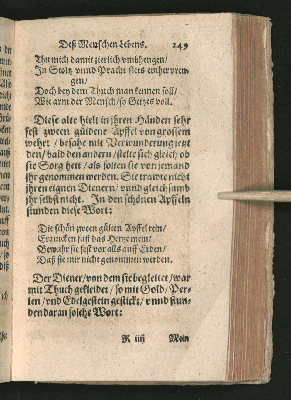 Deß Menschen Lebens. 249
Thu mich damit zierlich umbhengen/
In Stoltz vnnd Pracht stets einher prengen/
Doch bey dem Thuch man kennen soll/
Wie arm der Mensch/so Geitzes voll.
Diese alte hielt in ihren Händen sehr
fest zween güldene Apffel von grossem
wehrt/besahe mit Verwunderung jetzt
den/bald den andern/stelte sich gleich ob
sie Sorg hett/als solten sie von jemand
ihr genommen werden. Sie trawte nicht
ihren eignen Dienern/vnnd gleichsamb
ihr selbst nicht. In den schönen Apffeln
stunden diese Wort:
Die schön zween gülden Apffel rein/
Erquicken fast das Hertze mein/
Bewahr sie fest vor alls auff Erden/
Daß sie mir nicht genommen werden.
Der Diener/von dem sie begleitet/war
mit Thuch gekleidet/so mit Gold/Per-
len/vnd Edelgestein gestickt/vnnd stun-
den daran solche Wort:
R iiij Mein